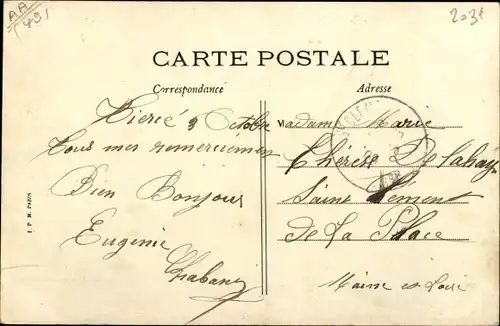 AA
431
203e
CARTE POSTALE
Correspondance
Adresse
Tiercé 3 Octobre
Tous mes remerciements
Bien Bonjour
Eugénie
Chabané
Madame Marie
Thérèse Delahaye
Saint Clément
de La Place
Maine et Loire
I P M PARIS